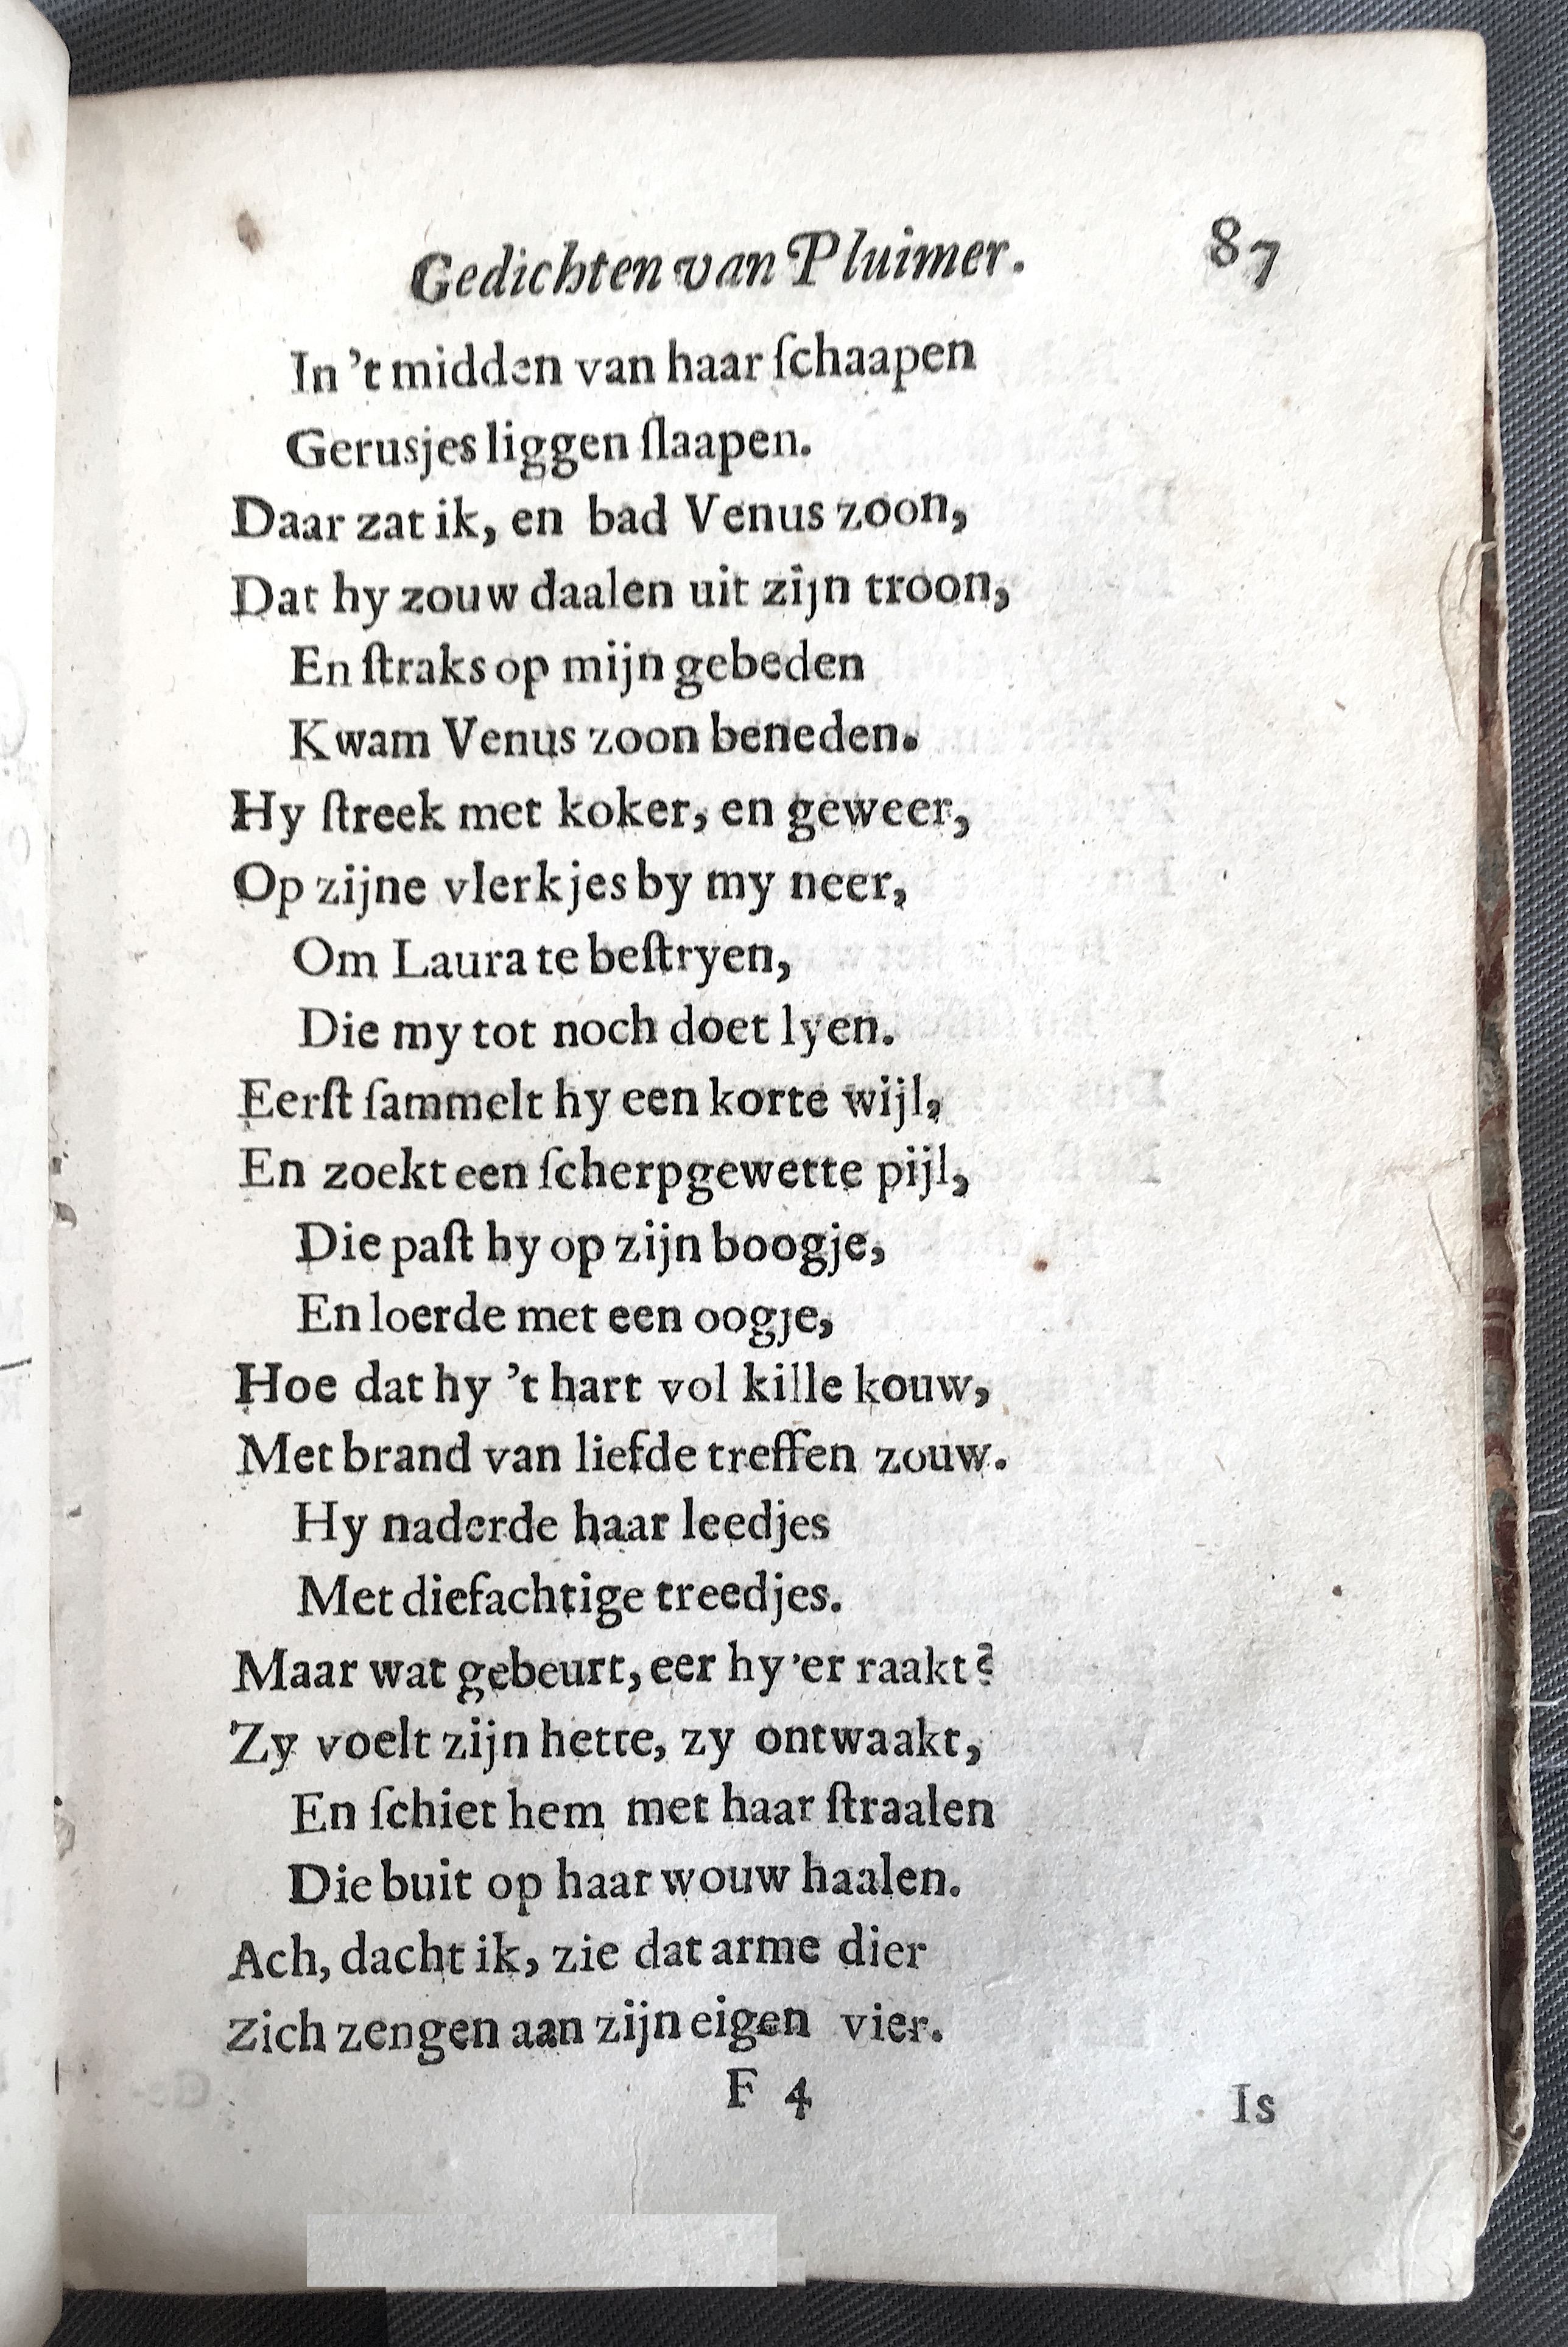 Gedichten van Pluimer. 87
In 't midden van haar ſchaapen
Gerusjes liggen ſlaapen.
Daar zat ik, en bad Venus zoon,
Dat hy zouw daalen uit zijn troon,
En ſtraks op mijn gebeden
Kwam Venus zoon beneden.
Hy ſtreek met koker, en geweer,
Op zijne vlerkjes by my neer,
Om Laura te beſtryen,
Die my tot noch doet lyen.
Eerſt ſammelt hy een korte wijl,
En zoekt een ſcherpgewette pijl,
Die paſt hy op zijn boogje,
En loerde met een oogje,
Hoe dat hy 't hart vol kille kouw,
Met brand van liefde treffen zouw.
Hy naderde haar leedjes
Met diefachtige treedjes.
Maar wat gebeurt, eer hy 'er raakt?
Zy voelt zijn hette, zy ontwaakt,
En ſchiet hem met haar ſtraalen
Die buit op haar wouw haalen.
Ach, dacht ik, zie dat arme dier
Zich zengen aan zijn eigen vier.
F 4 Is